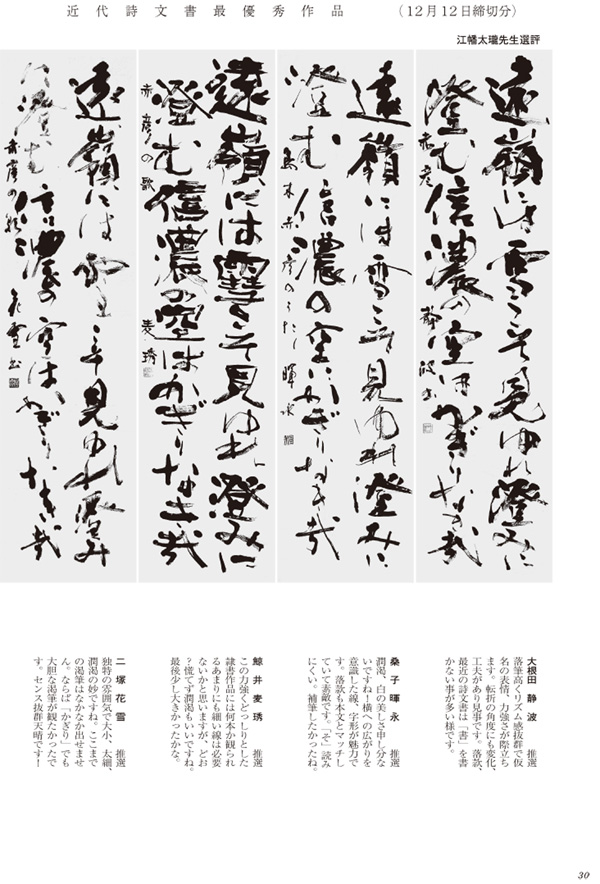 近代詩文書最優秀作品　（12月12日締切分）
江幡太瓏先生選評
遠嶺には雪こそ見ゆれ澄みに
澄む信濃の空はかぎりなき哉
赤彦　静波書
遠嶺には雪こそ見ゆれ澄みに
澄む信濃の空はかぎりなき哉
島木赤彦のうた　暉永
遠嶺には雪こそ見ゆれ澄みに
澄む信濃の空はかぎりなき哉
赤彦の歌　麦琇
遠嶺には雪こそ見ゆれ澄み
に澄む信濃の空はかぎりなき哉
赤彦の歌　花雪書
大根田静波　推選
落筆高くリズム感抜群で仮
名の表情、力強さが際立ち
ます。転折の角度にも変化、
工夫があり見事です。落款、
最近の詩文書は「書」を書
かない事が多い様です。
桑子暉永　推選
潤渇、白の美しさ申し分な
いですね！横への広がりを
意識した線、字形が魅力で
す。落款も本文とマッチし
ていて素敵です。「そ」読み
にくい。補筆したかったね。
鯨井麦琇　推選
この力強くどっしりとした
隷書作品には何本か観られ
るあまりにも細い線は必要
ないかと思いますが、どお
？慌てず潤渇もいいですね。
最後少し大きかったかな。
二塚花雪　推選
独特の雰囲気で大小、太細、
潤渇の妙ですね。ここまで
の渇筆はなかなか出せませ
ん。ならば「かぎり」でも
大胆な渇筆が観たかったで
す。センス抜群天晴です！
30